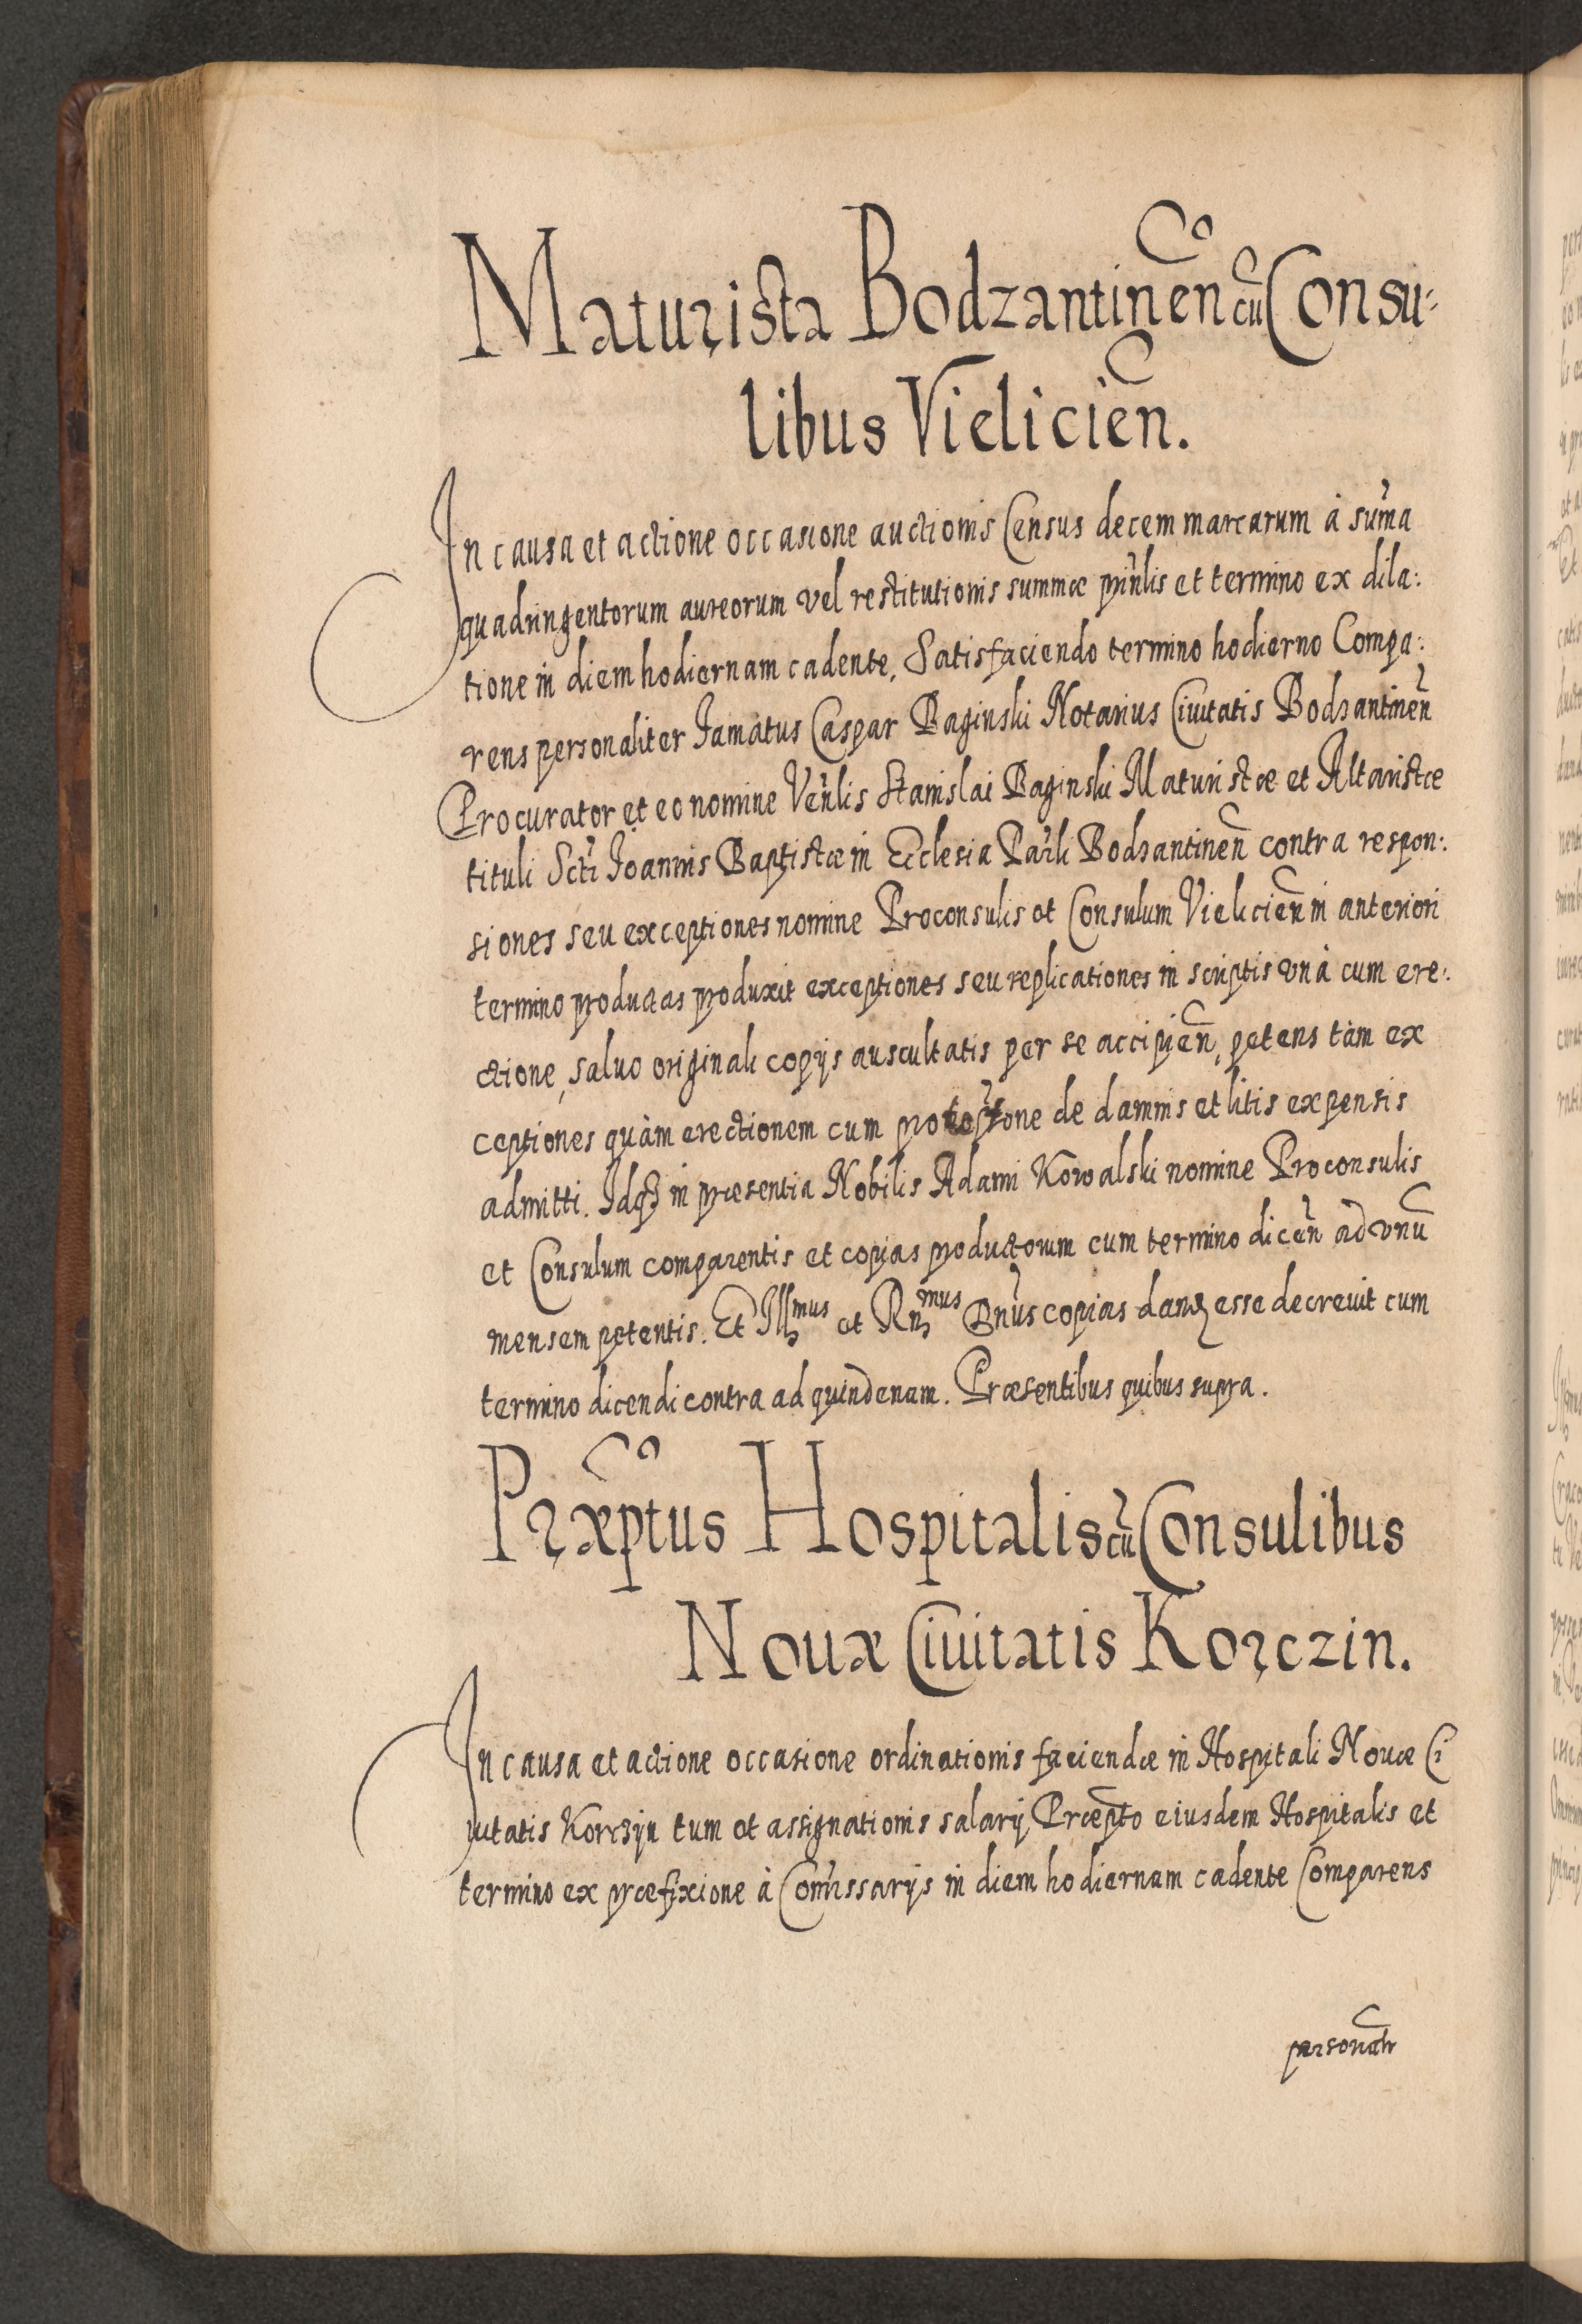 Maturista Bodzantinen̄ cū Consu-
libus Vielicien̄.
In causa et actione occasione auctionis Census decem marcarum à sum̄a
quadringentorum aureorum vel restitutionis summæ prin̄lis et termino ex dila:
tione in diem hodiernam cadente, Satisfaciendo termino hodierno Compa:
rens personaliter Famatus Caspar Baginski Notarius Civitatis Bodzantinen̄
Procurator et eo nomine Ven̄lis Stanislai Baginski Maturistæ et Altaristæ
tituli Scti Joannis Baptistæ in Ecclesia Par̄li Bodzantinen̄ contra respon:
siones seu exceptiones nomine Proconsulis et Consulum Vielicien̄ in anteriori
termino productas produxit exceptiones seu replicationes in scriptis unà cum ere:
ctione, salvo originali copijs auscultatis per se accipien̄, petens tàm ex
ceptiones quàm erectionem cum de damnis et litis expensis
admitti. Idq₃ in præsentia Nobilis Adami Kowalski nomine Proconsulis
et Consulum comparentis et copias productorum cum termino dicen̄ ad vnū
mensem petentis. Et Illmus et Rnmus Dn̄us copias dand esse decrevit cum
termino dicendi contra ad quindenam. Præsentibus quibus supra.
Præp̄tus Hospitalis cū Consulibus
Nouæ Ciuitatis Korczin.
In causa et actione occasione ordinationis faciendæ in Hospitali Nouæ Ci
uitatis Korczÿn tum et assignationis salarij Præp̄to eiusdem Hospitalis et
termino ex præfixione à Com̄issarijs in diem hodiernam cadente Comparens
personalr̄